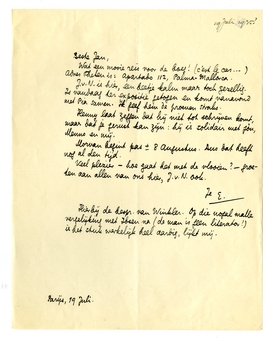 19 Juli, 1935?
Beste Jan,
Wat een mooie reis voor de boeg! (c'est le cas...)
Adres Theban is: Apartado 112, Palma-Mallorca.
J.v.N. is hier, een beetje kalm maar toch gezellig.
Ze vandaag her expositie gezien en komt vanavond
met Pia samen. Ik geef hem je groeten straks.
Henny laat zeggen dat hij niet tot schrijven komt,
maar dat je gerust kan zijn: hij is solidair met jou,
Menno en mij.
Morvan begint pas ± 8 Augustus. Dus dat heeft
nog al den tijd.
Veel plezier – hoe gaat het met de vlooien? – groe-
ten aan allen van ons hier, J.v.N. ook.
Je E.
Hierbij de bespr. van Winkler. Op die nogal malle
vergelijking met Ibsen na (de man is een literator!)
is het stuk werkelijk heel aardig, lijkt mij.
Parijs, 19 Juli.